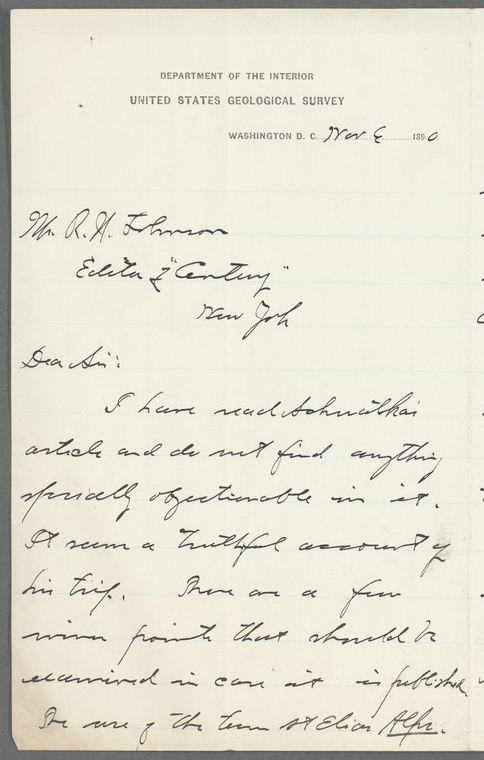 DEPARTMENT OF THE INTERIOR
UNITED STATES GEOLOGICAL SURVEY
WASHINGTON D. C. Nov 6 1890
Mr. R. W. Johnson
Editor of "Century"
New York
Dear Sir:
I have read Schwatka's
article and do not find anything
specially objectionable in it.
It seems a truthful account of
his trip. There are a few
minor points that should be
examined in case it is published.
The use of the term St Elias Alps.